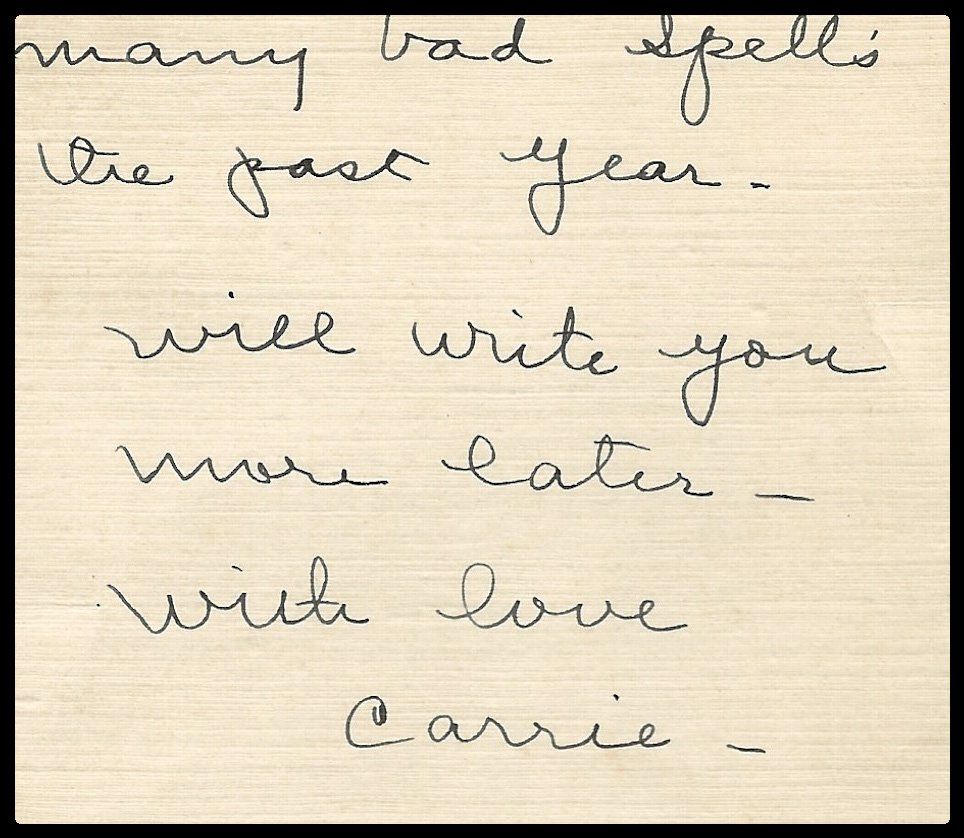 many bad spell's
the past year -
will write you
more later -
with love
Carrie -